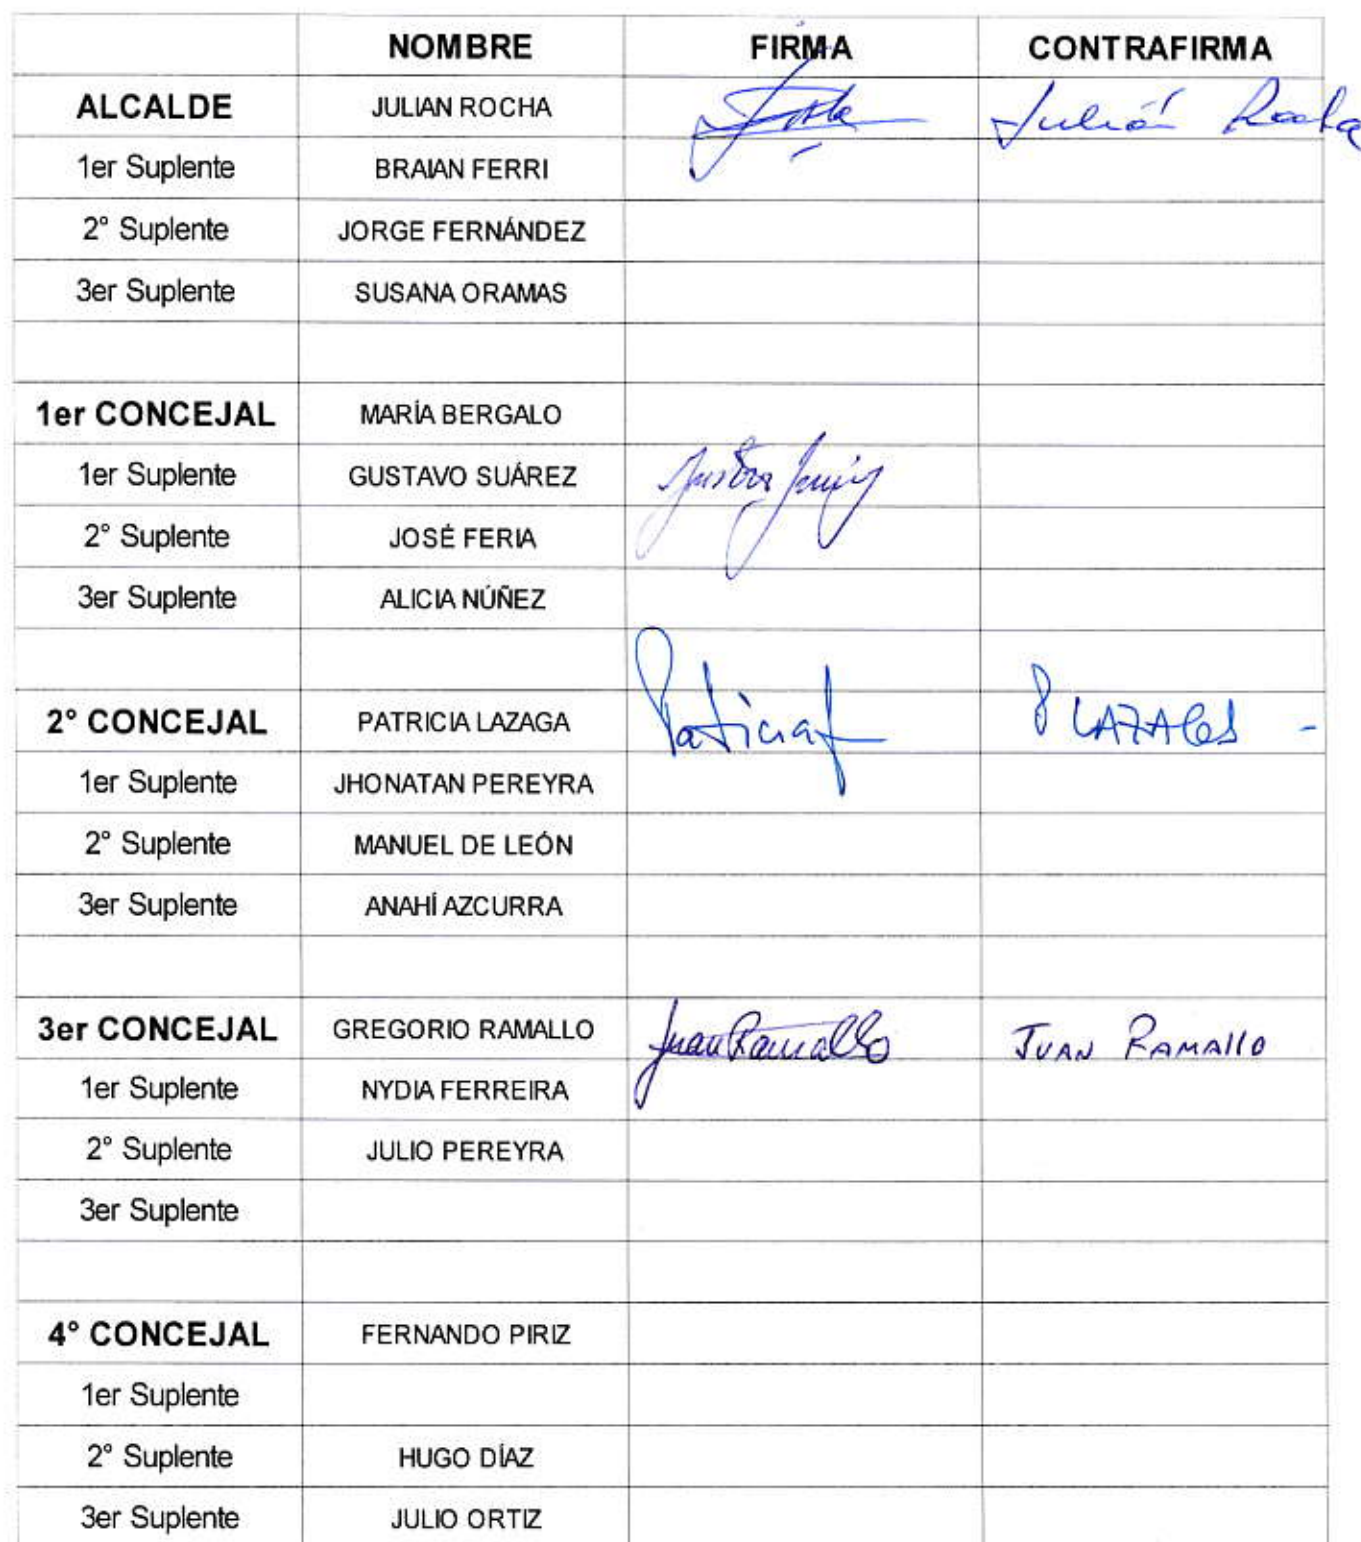 NOMBRE FIRMA CONTRAFIRMA
ALCALDE JULIAN ROCHA Julián Rocha
1er Suplente BRAIAN FERRI
2° Suplente JORGE FERNÁNDEZ
3er Suplente SUSANA ORAMAS
1er CONCEJAL MARÍA BERGALO
1er Suplente GUSTAVO SUÁREZ
2° Suplente JOSÉ FERIA
3er Suplente ALICIA NÚÑEZ
2° CONCEJAL PATRICIA LAZAGA
1er Suplente JHONATAN PEREYRA
2° Suplente MANUEL DE LEÓN
3er Suplente ANAHÍ AZCURRA
3er CONCEJAL GREGORIO RAMALLO Juan Ramallo JUAN RAMALLO
1er Suplente NYDIA FERREIRA
2° Suplente JULIO PEREYRA
3er Suplente
4° CONCEJAL FERNANDO PIRIZ
1er Suplente
2° Suplente HUGO DÍAZ
3er Suplente JULIO ORTIZ